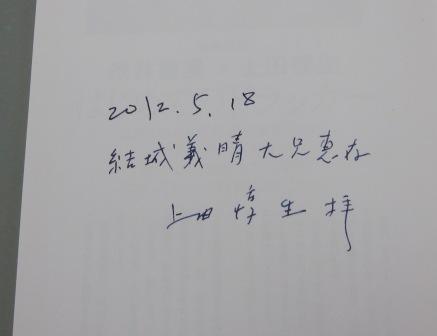 2012.5.18
結城義晴大兄恵存
上田惇生拝